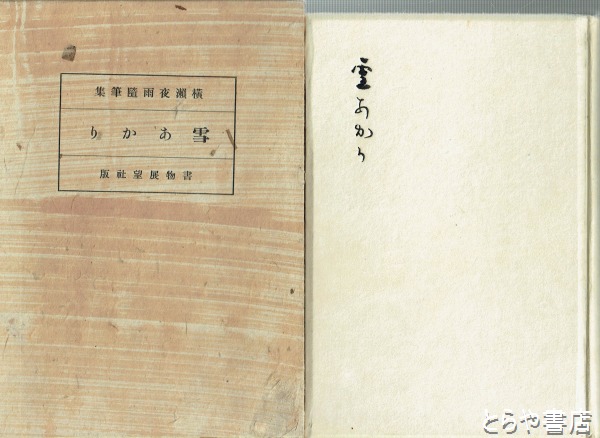 横瀬夜雨随筆集
雪あかり
書物展望社版
雪あかり
とらや書店